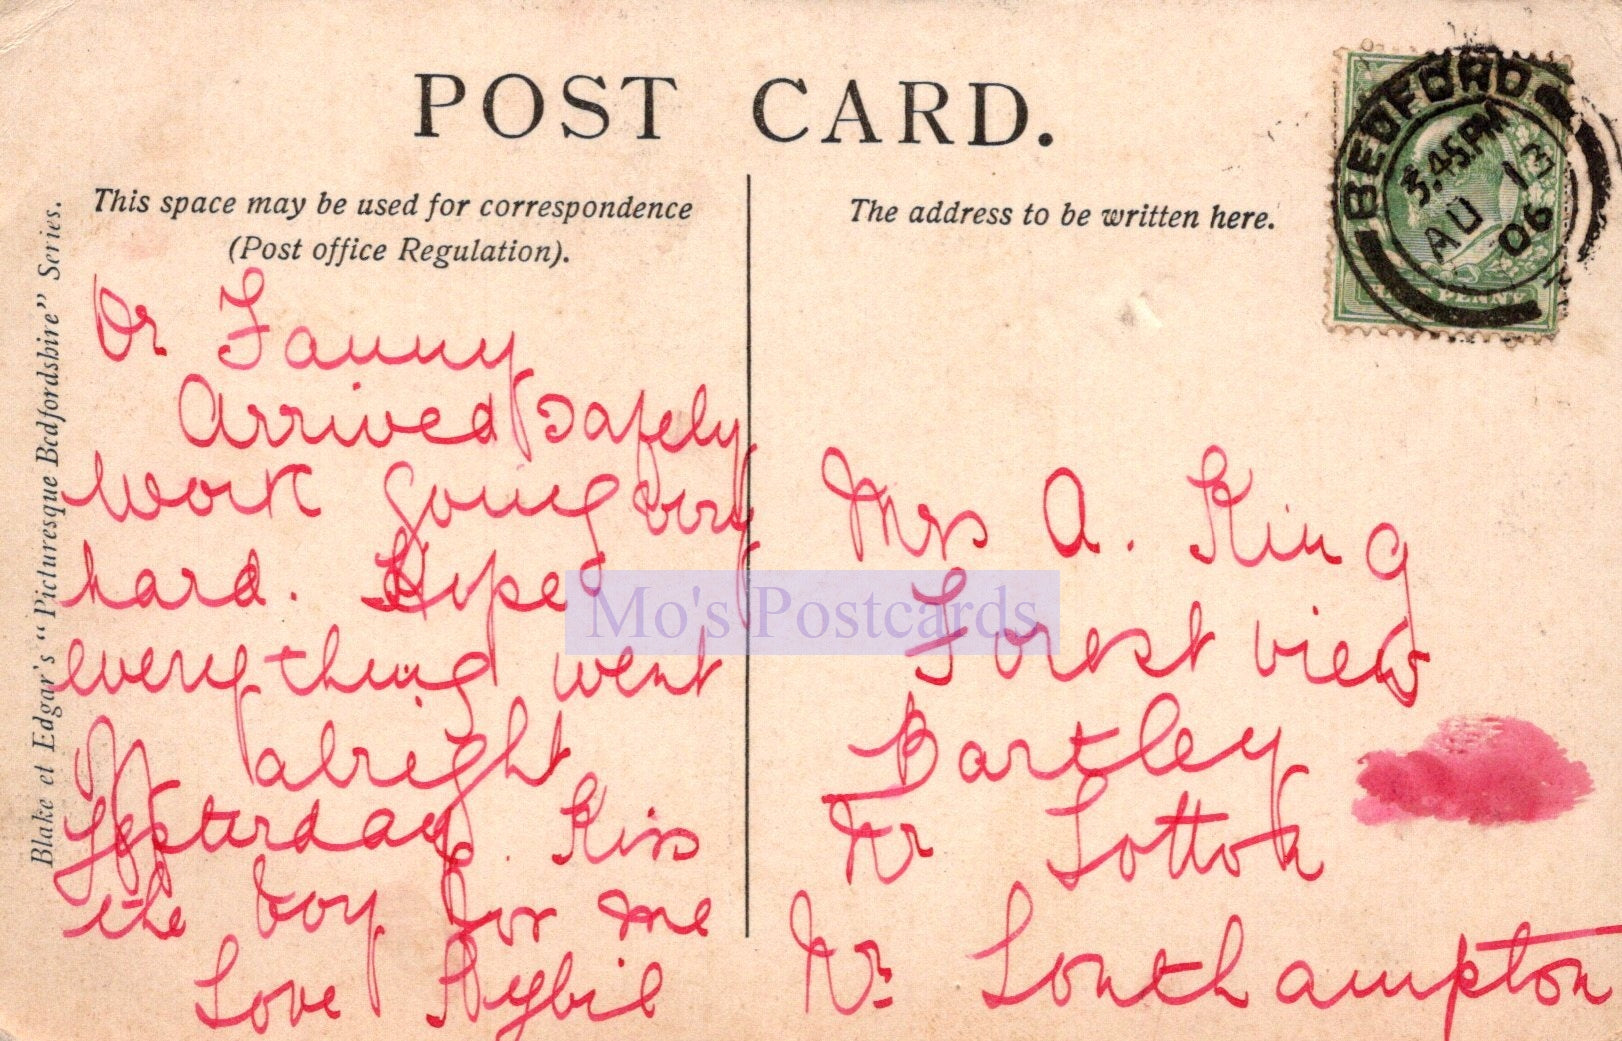 POST CARD.
This space may be used for correspondence
(Post office Regulation).
The address to be written here.
BEDFORD
3.45PM
AU 13
06
HALFPENNY
Blake et Edgar's "Picturesque Bedfordshire" Series.
Dr Fanny
Arrived safely
work going very
hard. Hope
everything went
off alright
Yesterday. Kiss
the boy for me
Love Sybil
Mrs A. King
Forest view
Bartley
Nr Totton
Nr Southampton
Mo's Postcards